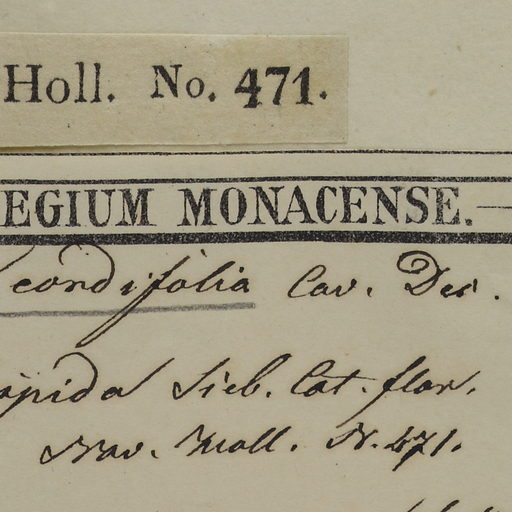 Holl. No. 471.
EGIUM MONACENSE.
cordifolia Cav. Des.
Sieb. Cat. flor.
Nov. Holl. N. 471.